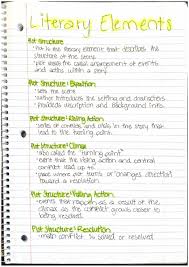 Literary Elements
Plot Structure
- plot is the literary element that describes the
structure of the story
- plot shows the causal arrangement of events
and actions within a story
Plot Structure: Exposition
- sets the scene
- author introduces the setting and characters
- provides description and background
Plot Structure: Rising Action
- series of events and crisis in the story that
lead to the turning point
Plot Structure: Climax
- also called the "turning point"
- event that the rising action and central
conflict lead up to
- what the reader has been waiting for
Plot Structure: Falling Action
- events that happen as a result of the
climax as the conflict grows closer to
being resolved
Plot Structure: Resolution
- main conflict is solved or resolved